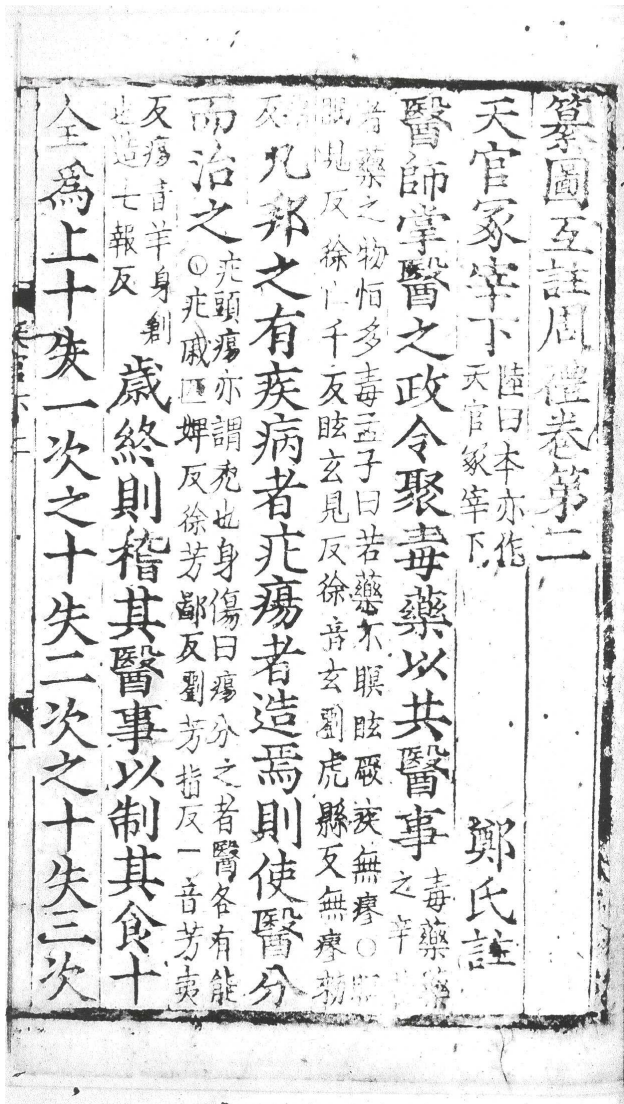 纂圖互註周禮卷第二
天官冢宰下 陸曰本亦作
天官冢宰下 鄭氏註
醫師掌醫之政令聚毒藥以共醫事 毒藥藥
之辛
者藥之物恒多毒孟子曰若藥不瞑眩厥疾無瘳○
眠見反徐亡千反眩玄見反徐音玄劉虎縣反無瘳勑
反 凡邦之有疾病者疕瘍者造焉則使醫分
而治之 疕頭瘍亦謂禿也身傷曰瘍分之者醫各有能
○疕戚匹婢反徐芳鄙反劉芳指反一音芳夷
反瘍音羊身創
也造七報反 歲終則稽其醫事以制其食十
全爲上十失一次之十失二次之十失三次